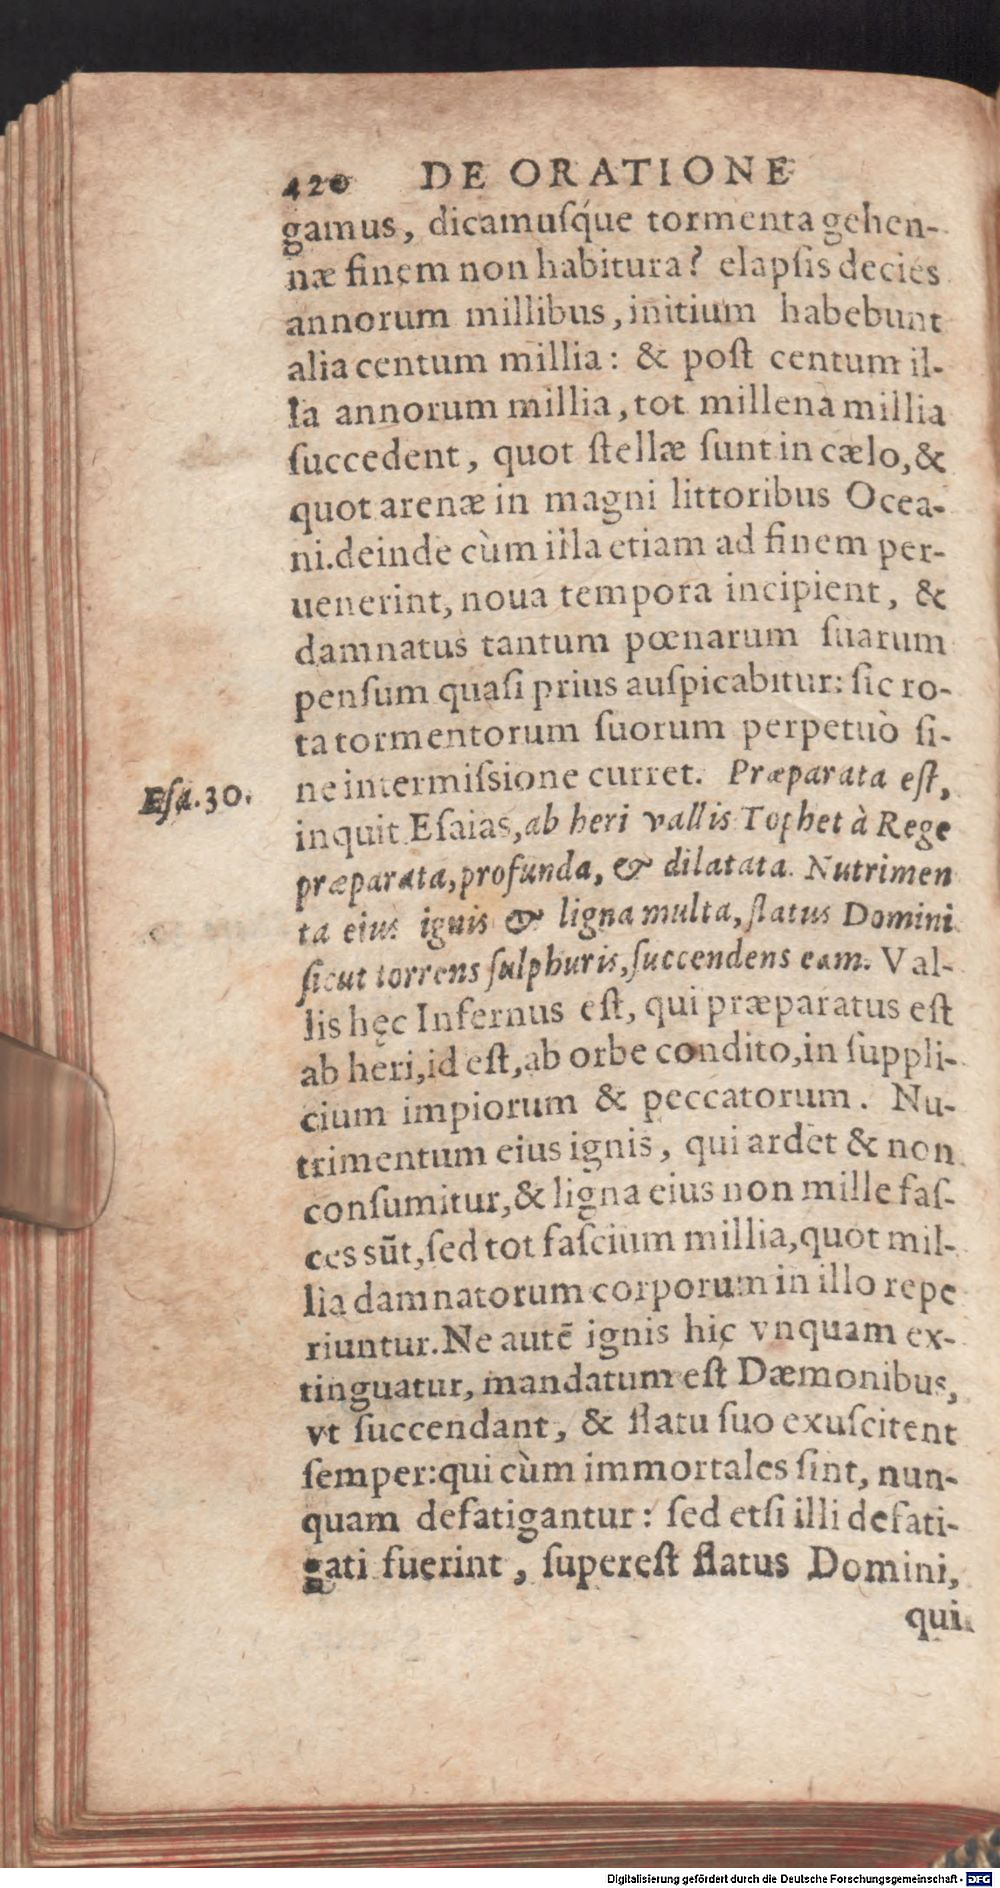 420 DE ORATIONE
gamus, dicamusq́ue tormenta gehen-
næ finem non habitura? elapsis decies
annorum millibus, initium habebunt
alia centum millia: & post centum il-
la annorum millia, tot millena millia
succedent, quot stellæ sunt in cælo, &
quot arenæ in magni littoribus Ocea-
ni. deinde cùm illa etiam ad finem per-
uenerint, noua tempora incipient, &
damnatus tantum pœnarum suarum
pensum quasi prius auspicabitur: sic ro-
ta tormentorum suorum perpetuò si-
ne intermissione curret. Præparata est,
Esa. 30.
inquit Esaias, ab heri vallis Tophet à Rege
præparata, profunda, & dilatata. Nutrimen
ta eius ignis & ligna multa, flatus Domini
sicut torrens sulphuris, succendens eam. Val-
lis hęc Infernus est, qui præparatus est
ab heri, id est, ab orbe condito, in suppli-
cium impiorum & peccatorum. Nu-
trimentum eius ignis, qui ardet & non
consumitur, & ligna eius non mille fas-
ces sũt, sed tot fascium millia, quot mil-
lia damnatorum corporum in illo repe
riuntur. Ne autẽ ignis hic vnquam ex-
tinguatur, mandatum est Dæmonibus,
vt succendant, & flatu suo exuscitent
semper: qui cùm immortales sint, nun-
quam defatigantur: sed etsi illi defati-
gati fuerint, superest flatus Domini,
qui
Digitalisierung gefördert durch die Deutsche Forschungsgemeinschaft - DFG